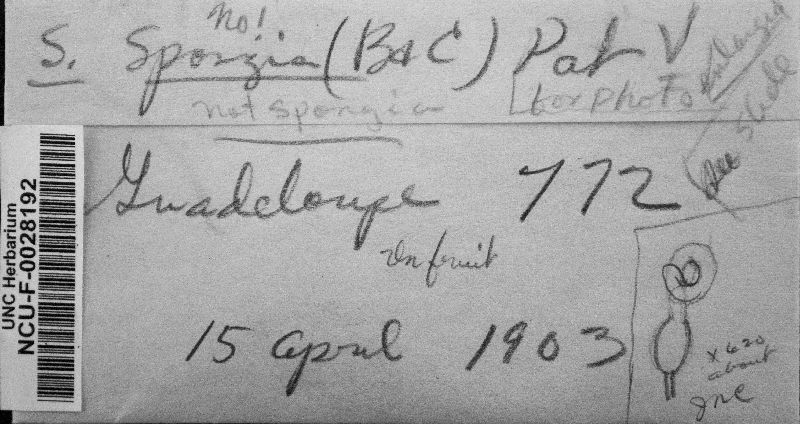 No!
S. Spongia (B & C) Pat V
not spongia
for photo
Enlarged
See slide
Guadeloupe 772
In fruit
15 April 1903
x 620
about
JNC
UNC Herbarium
NCU-F-0028192